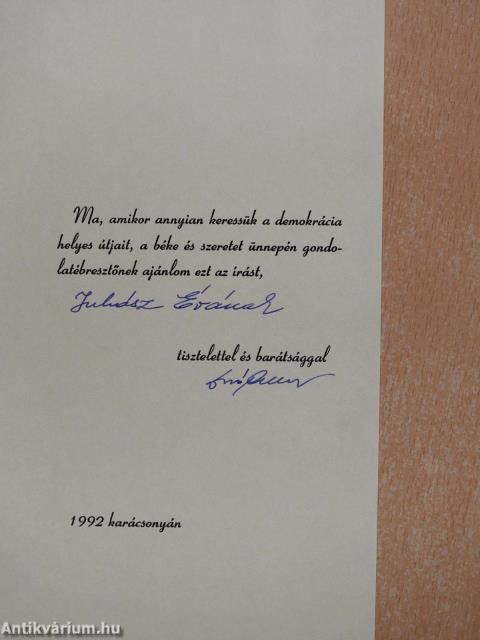 Ma, amikor annyian keressük a demokrácia
helyes útjait, a béke és szeretet ünnepén gondo-
latébresztőnek ajánlom ezt az írást,
Juhász Évának
tisztelettel és barátsággal
1992 karácsonyán
Antikvárium.hu